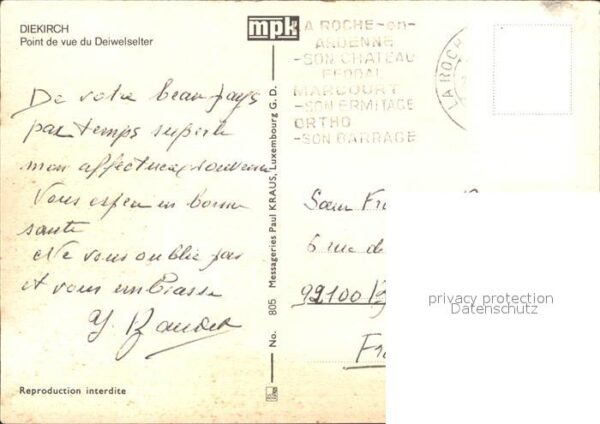 DIEKIRCH
Point de vue du Deiwelselter
mpk
LA ROCHE-en-
ARDENNE
-SON CHATEAU
FEODAL
MARCOURT
-SON ERMITAGE
ORTHO
-SON BARRAGE
LA ROCH
De votre beau pays
par temps superbe
mon affectueux souvenir
Vous espère en bonne
santé
Ne vous oublie pas
et vous embrasse
Y.
No. 805 Messageries Paul KRAUS, Luxembourg G. D.
Sœur
6 rue de
92100 B
Fra
privacy protection
Datenschutz
Reproduction interdite